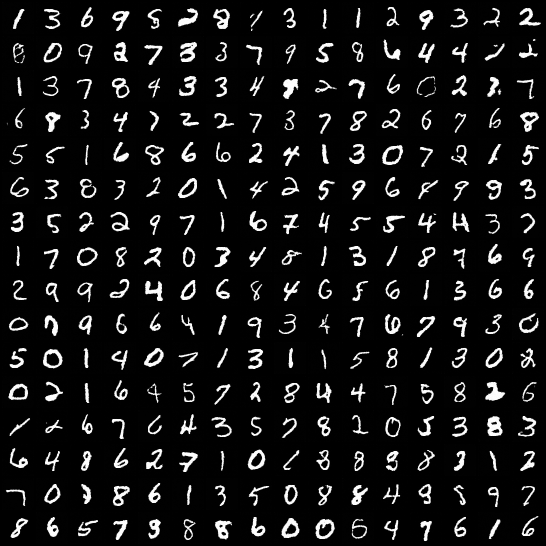 1 3 6 9 5 2 8 1 3 1 1 2 9 3 2 2
8 0 9 2 7 3 3 7 9 5 8 6 4 4 2 2
1 3 7 8 4 3 3 4 8 2 7 6 0 2 3 7
6 8 3 4 7 2 2 7 3 7 8 2 6 7 6 8
5 5 1 6 8 6 6 2 4 1 3 0 7 2 1 5
6 3 8 3 2 0 1 4 2 5 9 6 8 9 9 3
3 5 2 2 9 7 1 6 7 4 5 5 4 4 3 7
1 7 0 8 2 0 3 4 8 1 3 1 8 7 6 9
2 9 9 2 4 0 6 8 4 6 5 6 1 3 6 6
0 7 9 6 6 4 1 9 3 4 7 6 7 9 3 0
5 0 1 4 0 7 1 3 1 1 5 8 1 3 0 2
0 2 1 6 4 5 7 2 8 4 4 7 5 8 2 6
1 2 6 7 6 4 3 5 7 8 2 0 5 3 8 3
6 4 8 6 2 7 1 0 1 8 8 9 8 3 1 2
7 0 3 8 6 1 3 5 0 8 8 4 9 8 9 7
8 6 5 7 9 8 8 6 0 0 5 4 7 6 1 6